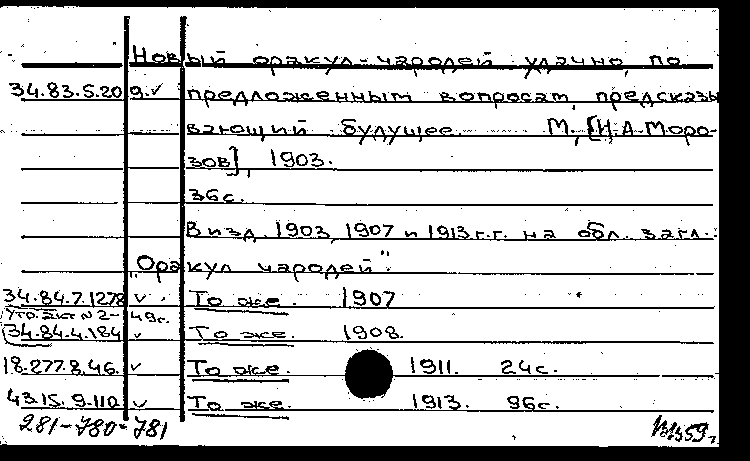 Новый оракул-чародей удачно, по
34.83.5.20 9.✓ предложенным вопросам, предсказы
вающий будущее. М., [И.А. Моро-
зов], 1903.
36с.
В изд. 1903, 1907 и 1913 г.г. на обл. загл.:
"Оракул чародей".
34.84.7.1278 ✓ То же. 1907
Утр. акт N 2- 49г.
34.84.4.184 ✓ То же. 1908.
18.277.8.46. ✓ То же. 1911. 24с.
43.15.9.110 ✓ То же. 1913. 96с.
281-780-781